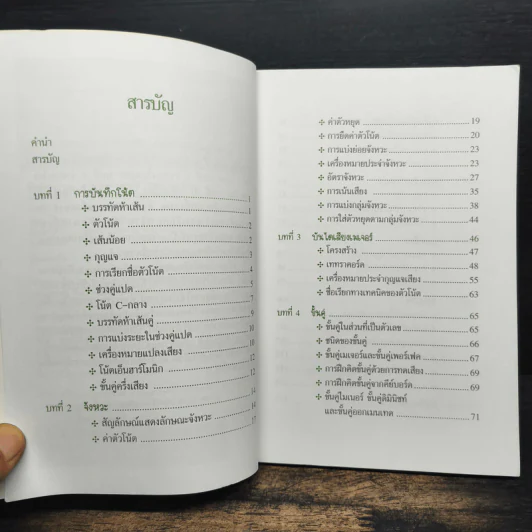 สารบัญ
คำนำ
สารบัญ
บทที่ 1 การบันทึกโน้ต 1
✣ บรรทัดห้าเส้น 1
✣ ตัวโน้ต 2
✣ เส้นน้อย 2
✣ กุญแจ
✣ การเรียกชื่อตัวโน้ต
✣ ช่วงคู่แปด
✣ โน้ต C-กลาง
✣ บรรทัดห้าเส้นคู่
✣ การแบ่งระยะในช่วงคู่แปด
✣ เครื่องหมายแปลงเสียง
✣ โน้ตเอ็นฮาร์โมนิก 12
✣ ขั้นคู่ครึ่งเสียง
บทที่ 2 จังหวะ
✣ สัญลักษณ์แสดงลักษณะจังหวะ
✣ ค่าตัวโน้ต
✣ ค่าตัวหยุด 19
✣ การยืดค่าตัวโน้ต 20
✣ การแบ่งย่อยจังหวะ 23
✣ เครื่องหมายประจำจังหวะ 23
✣ อัตราจังหวะ 27
✣ การเน้นเสียง 35
✣ การแบ่งกลุ่มจังหวะ 38
✣ การใส่ตัวหยุดตามกลุ่มจังหวะ 44
บทที่ 3 บันไดเสียงเมเจอร์ 46
✣ โครงสร้าง 47
✣ เททราคอร์ด 48
✣ เครื่องหมายประจำกุญแจเสียง 55
✣ ชื่อเรียกทางเทคนิคของตัวโน้ต 63
บทที่ 4 ขั้นคู่ 65
✣ ขั้นคู่ในส่วนที่เป็นตัวเลข 65
✣ ชนิดของขั้นคู่ 66
✣ ขั้นคู่เมเจอร์และขั้นคู่เพอร์เฟค 66
✣ การฝึกคิดขั้นคู่ด้วยการทดเสียง 69
✣ การฝึกคิดขั้นคู่จากคีย์บอร์ด 69
✣ ขั้นคู่ไมเนอร์ ขั้นคู่ดิมินิชท์
และขั้นคู่ออกเมนเทด 71